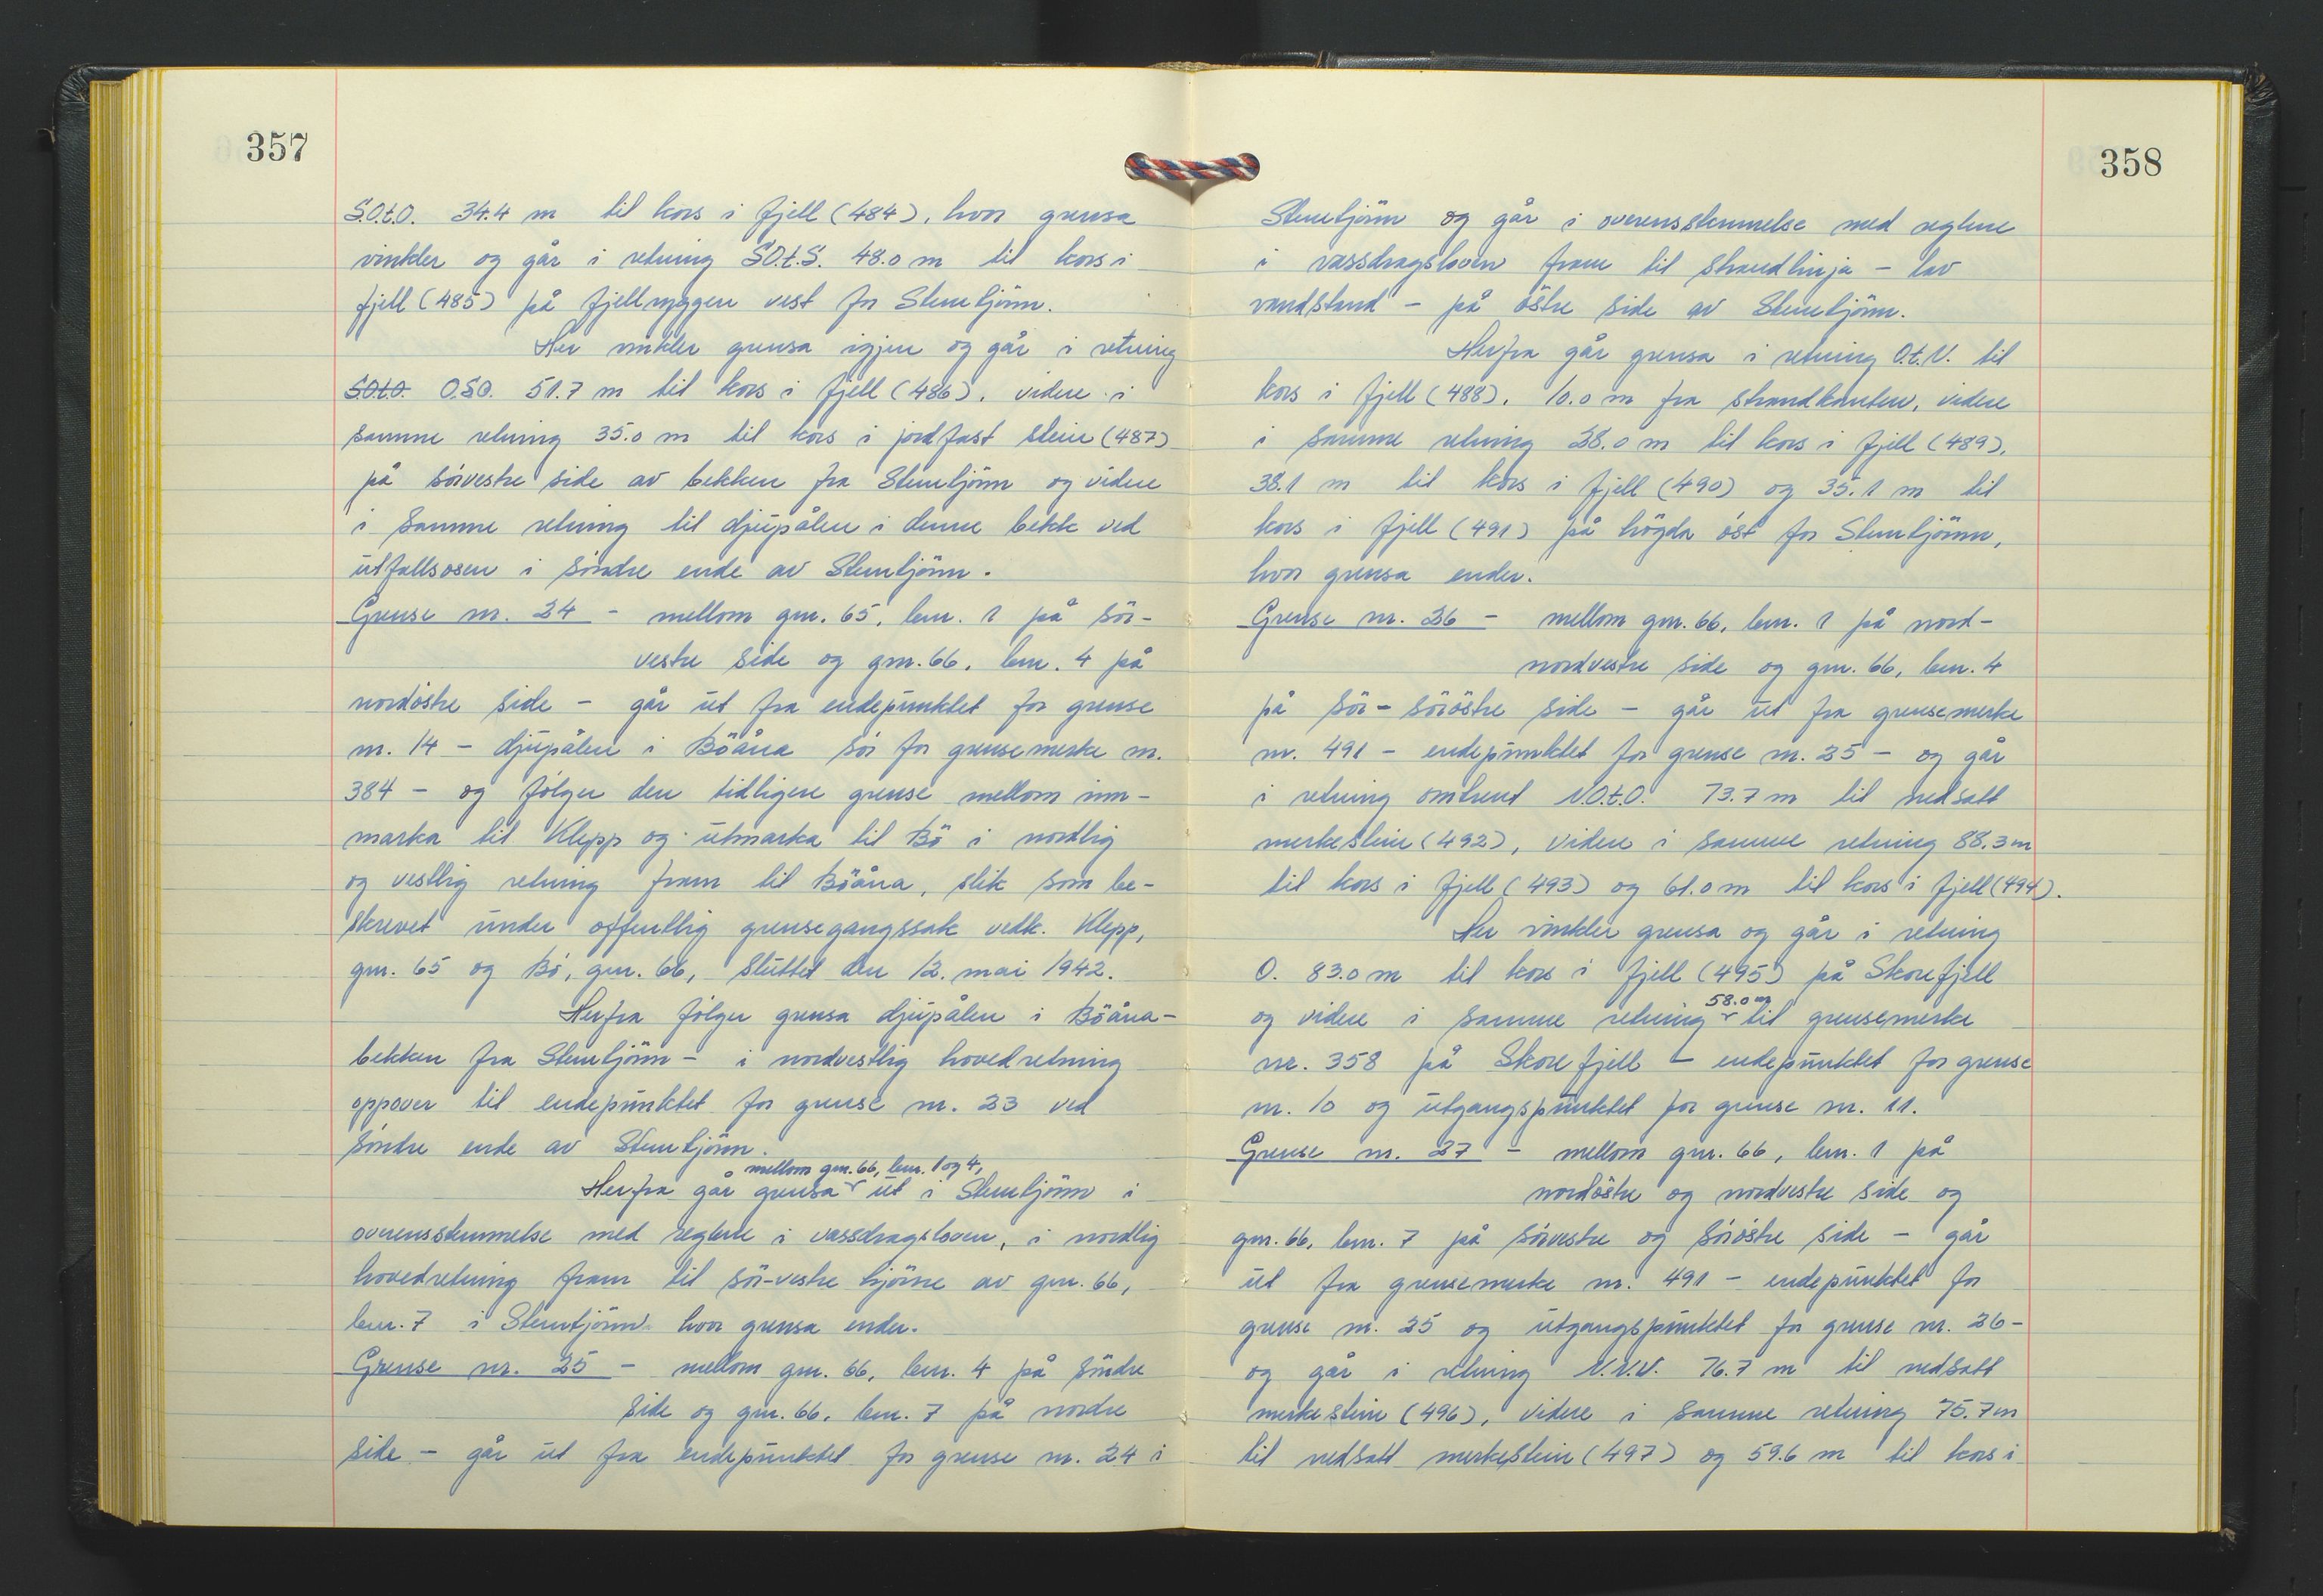 357
S.O.t.O. 34.4 m til kors i fjell (484), hvor grensa
vinkler og går i retning S.O.t.S. 48.0 m til kors i
fjell (485) på fjellryggen vest for Stemtjönn.
Her vinkler grensa igjen og går i retning
S.O.t.O. O.S.O. 51.7 m til kors i fjell (486), videre i
samme retning 35.0 m til kors i jordfast stein (487)
på sörvestre side av bekken fra Stemtjönn og videre
i samme retning til djupålen i denne bekk ved
utfallsosen i söndre ende av Stemtjönn.
Grense nr. 24 - mellom gnr. 65, bnr. 1 på sör-
vestre side og gnr. 66, bnr. 4 på
nordöstre side - går ut fra endepunktet for grense
nr. 14 - djupålen i Böåna sör for grensemerke nr.
384 - og fölger den tidligere grense mellom inn-
marka til Klepp og utmarka til Bö i nordlig
og vestlig retning fram til Böåna, slik som be-
skrevet under offentlig grensegangssak vedk. Klepp,
gnr. 65 og Bö, gnr. 66, sluttet den 12. mai 1942.
Herfra fölger grensa djupålen i Böåna -
bekken fra Stemtjönn - i nordvestlig hovedretning
oppover til endepunktet for grense nr. 23 ved
söndre ende av Stemtjönn.
mellom gnr. 66, bnr. 1 og 4,
Herfra går grensa ut i Stemtjönn i
overensstemmelse med reglene i vassdragsloven, i nordlig
hovedretning fram til sör-vestre hjörne av gnr. 66,
bnr. 7 i Stemtjönn hvor grensa ender.
Grense nr. 25 - mellom gnr. 66, bnr. 4 på söndre
side og gnr. 66, bnr. 7 på nordre
side - går ut fra endepunktet for grense nr. 24 i
358
Stemtjönn og går i overensstemmelse med reglene
i vassdragsloven fram til strandlinja - lav
vandstand - på östre side av Stemtjönn.
Herfra går grensa i retning O.t.N. til
kors i fjell (488), 10.0 m fra strandkanten, videre
i samme retning 38.0 m til kors i fjell (489),
38.1 m til kors i fjell (490) og 35.1 m til
kors i fjell (491) på högda öst for Stemtjönn,
hvor grensa ender.
Grense nr. 26 - mellom gnr. 66, bnr. 1 på nord-
nordvestre side og gnr. 66, bnr. 4
på sör-söröstre side - går ut fra grensemerke
nr. 491 - endepunktet for grense nr. 25 - og går
i retning omtrent N.O.t.O. 73.7 m til nedsatt
merkestein (492), videre i samme retning 88.3 m
til kors i fjell (493) og 61.0 m til kors i fjell (494).
Her vinkler grensa og går i retning
O. 83.0 m til kors i fjell (495) på Skorefjell
58.0 m
og videre i samme retning til grensemerke
nr. 358 på Skorefjell - endepunktet for grense
nr. 10 og utgangspunktet for grense nr. 11.
Grense nr. 27 - mellom gnr. 66, bnr. 1 på
nordöstre og nordvestre side og
gnr. 66, bnr. 7 på sörvestre og söröstre side - går
ut fra grensemerke nr. 491 - endepunktet for
grense nr. 25 og utgangspunktet for grense nr. 26 -
og går i retning N.N.V. 76.7 m til nedsatt
merkestein (496), videre i samme retning 75.7 m
til nedsatt merkestein (497) og 59.6 m til kors i